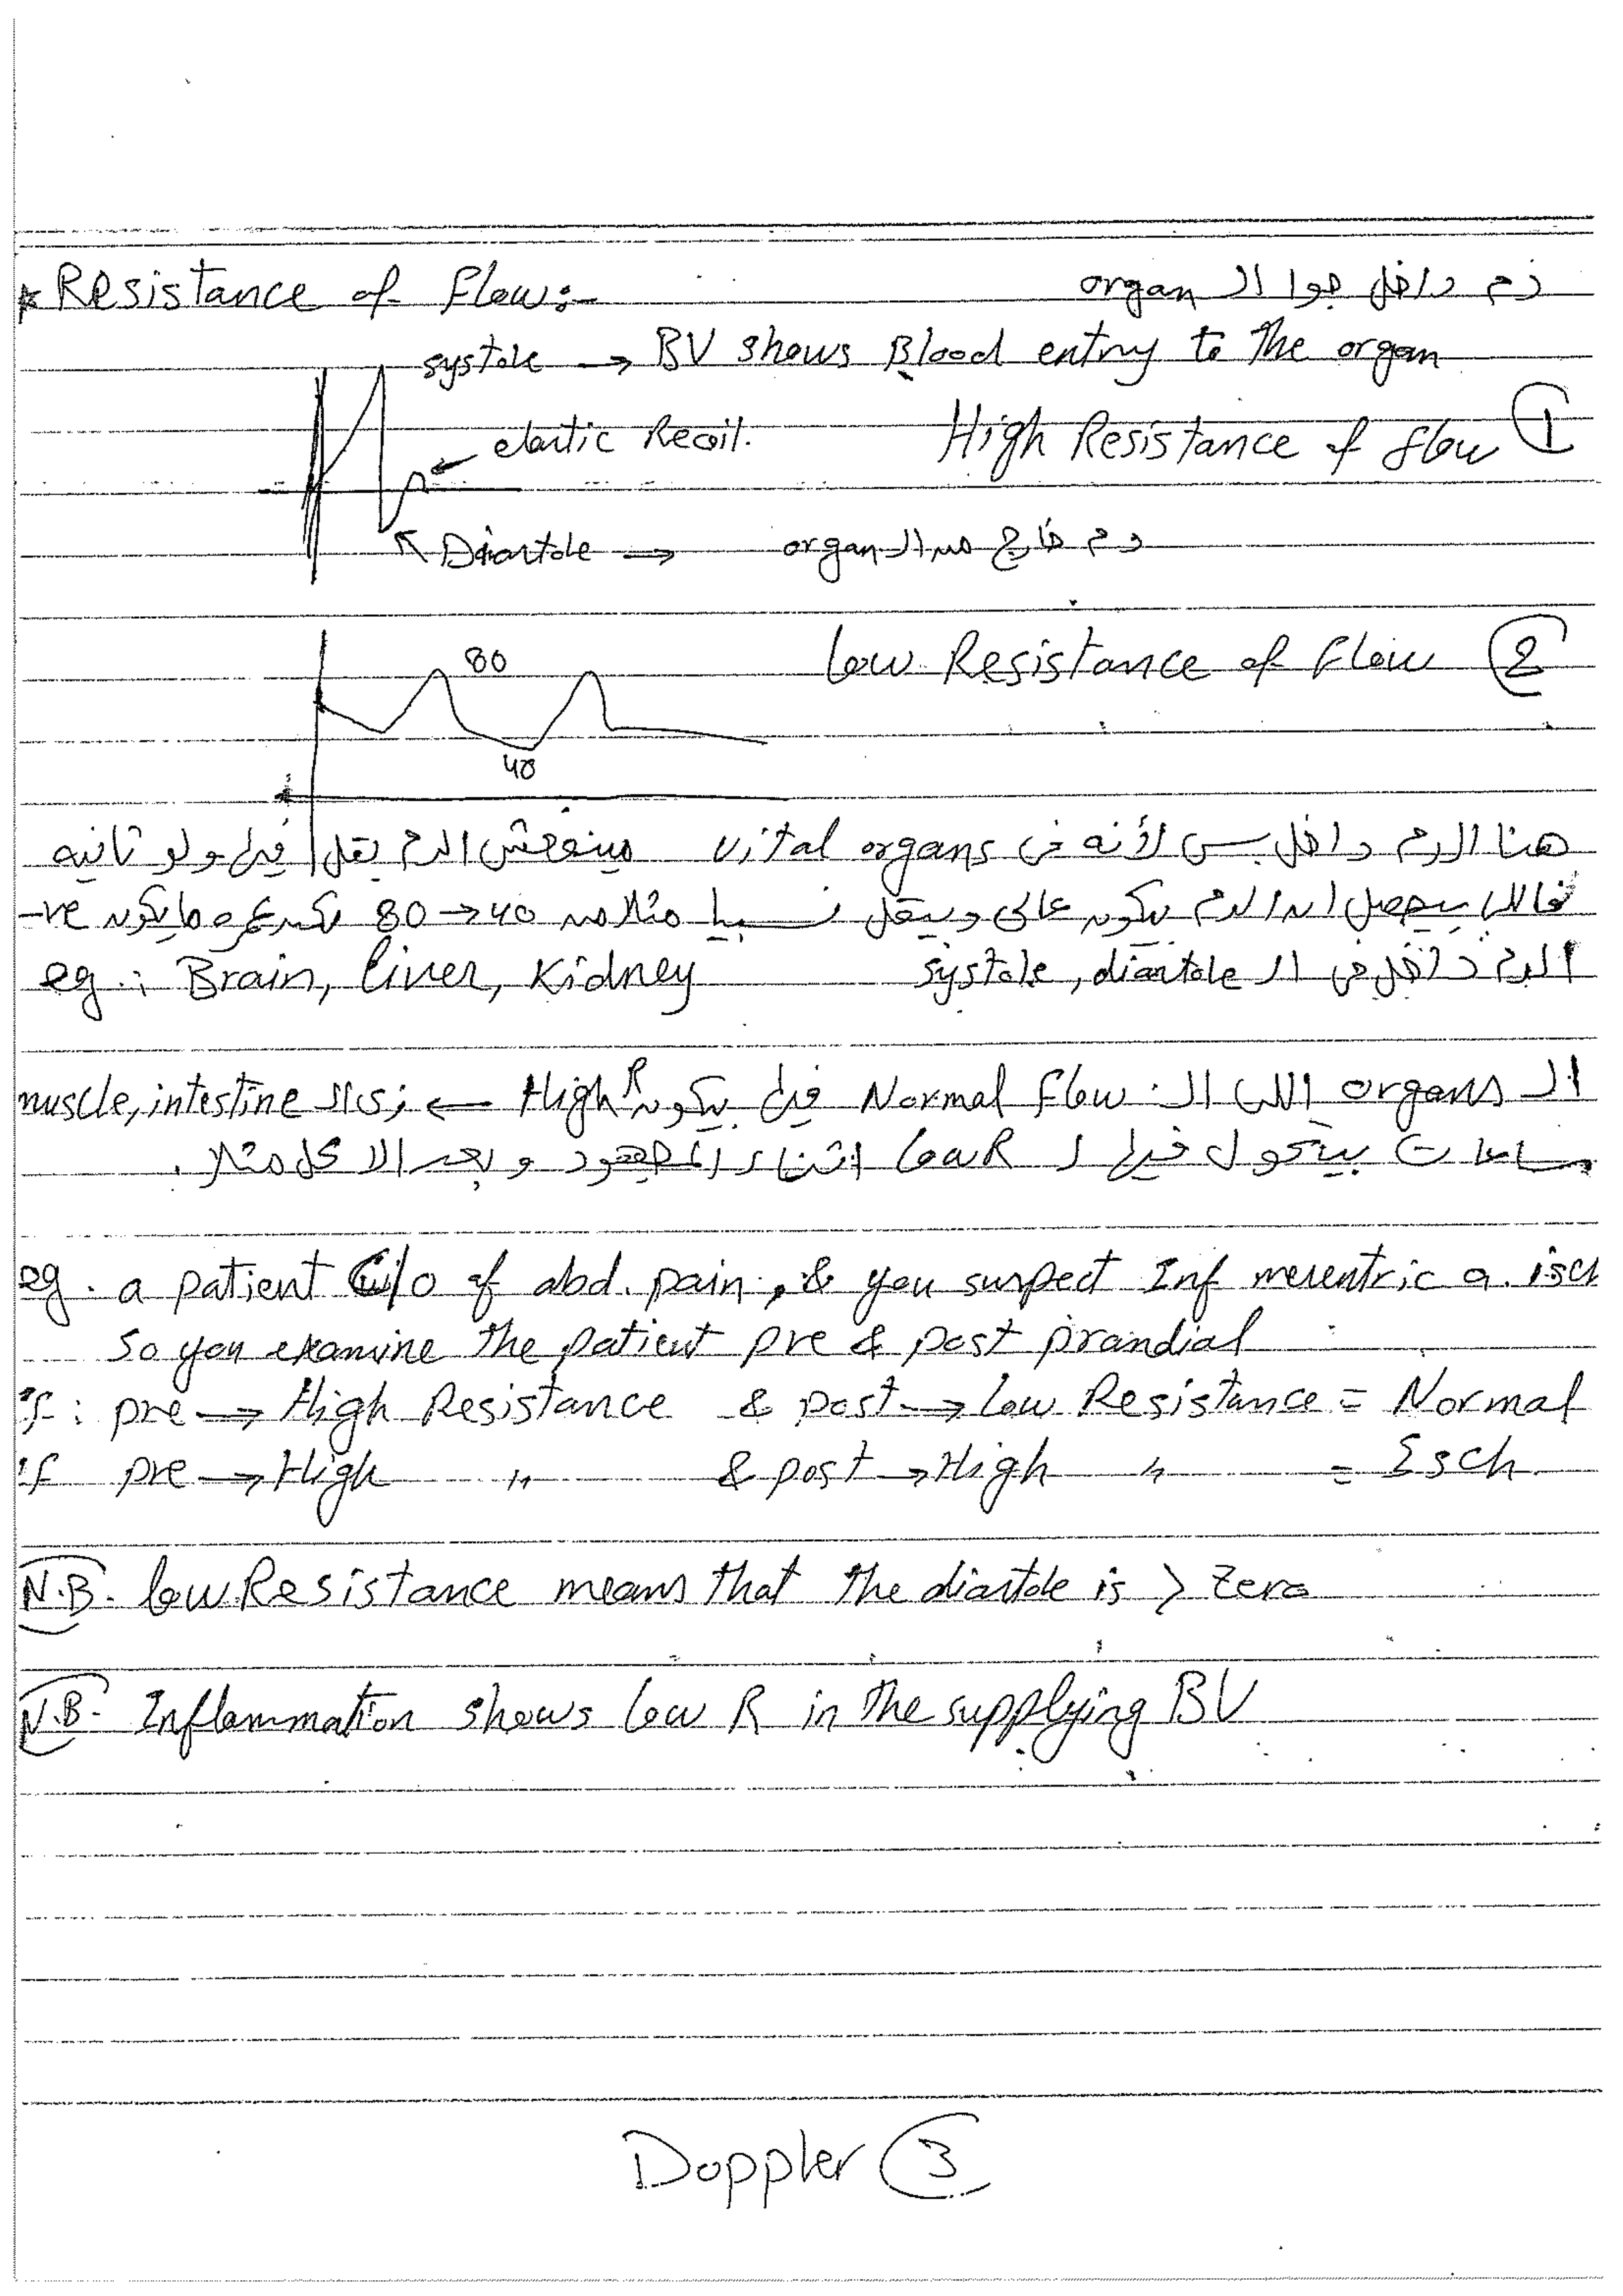 * Resistance of flow:-
دم داخل جوا الـ organ
systole → BV shows Blood entry to the organ
High Resistance of flow ①
elastic Recoil.
Diastole → دم خارج من الـ organ
low Resistance of flow ②
80
40
هنا الدم داخل بس لأنه فى vital organs مينفعش الدم يقل فيها ولو ثانيه
فاللى بيحصل ان الدم بيكون عالى وبيقل نسبيا مثلا من 80 → 40 عمره مايكون -ve
الدم داخل فى الـ systole, diastole
eg.: Brain, liver, kidney
الـ organs اللى الـ Normal flow فيها بيكون High R ← زى الـ muscle, intestine
ساعات بيتحول فيها لـ low R اثناء المجهود و بعد الاكل مثلا.
eg. a patient C/o of abd. pain, & you suspect Inf mesentric a. isch
so you examine the patient pre & post prandial
if: pre → High Resistance & post → low Resistance = Normal
if pre → High " & post → High " = Isch.
N.B. low Resistance means that the diastole is > Zero
N.B. Inflammation shows low R in the supplying BV
Doppler ③